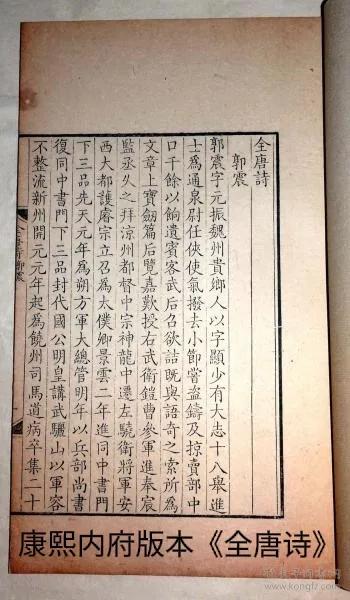 全唐詩
郭震
郭震字元振魏州貴鄉人以字顯少有大志十八舉進
士爲通泉尉任俠使氣撥去小節嘗盗鑄及掠賣部中
口千餘以餉遺賓客武后召欲詰既與語奇之索所爲
文章上寶劒篇后覽嘉歎授右武衛鎧曹參軍進奉宸
監丞久之拜涼州都督中宗神龍中遷左驍衛將軍安
西大都護睿宗立召爲太僕卿景雲二年進同中書門
下三品先天元年爲朔方軍大總管明年以兵部尚書
復同中書門下三品封代國公明皇講武驪山以軍容
不整流新州開元元年起爲饒州司馬道病卒集二十
全唐詩 郭震
康熙内府版本《全唐诗》